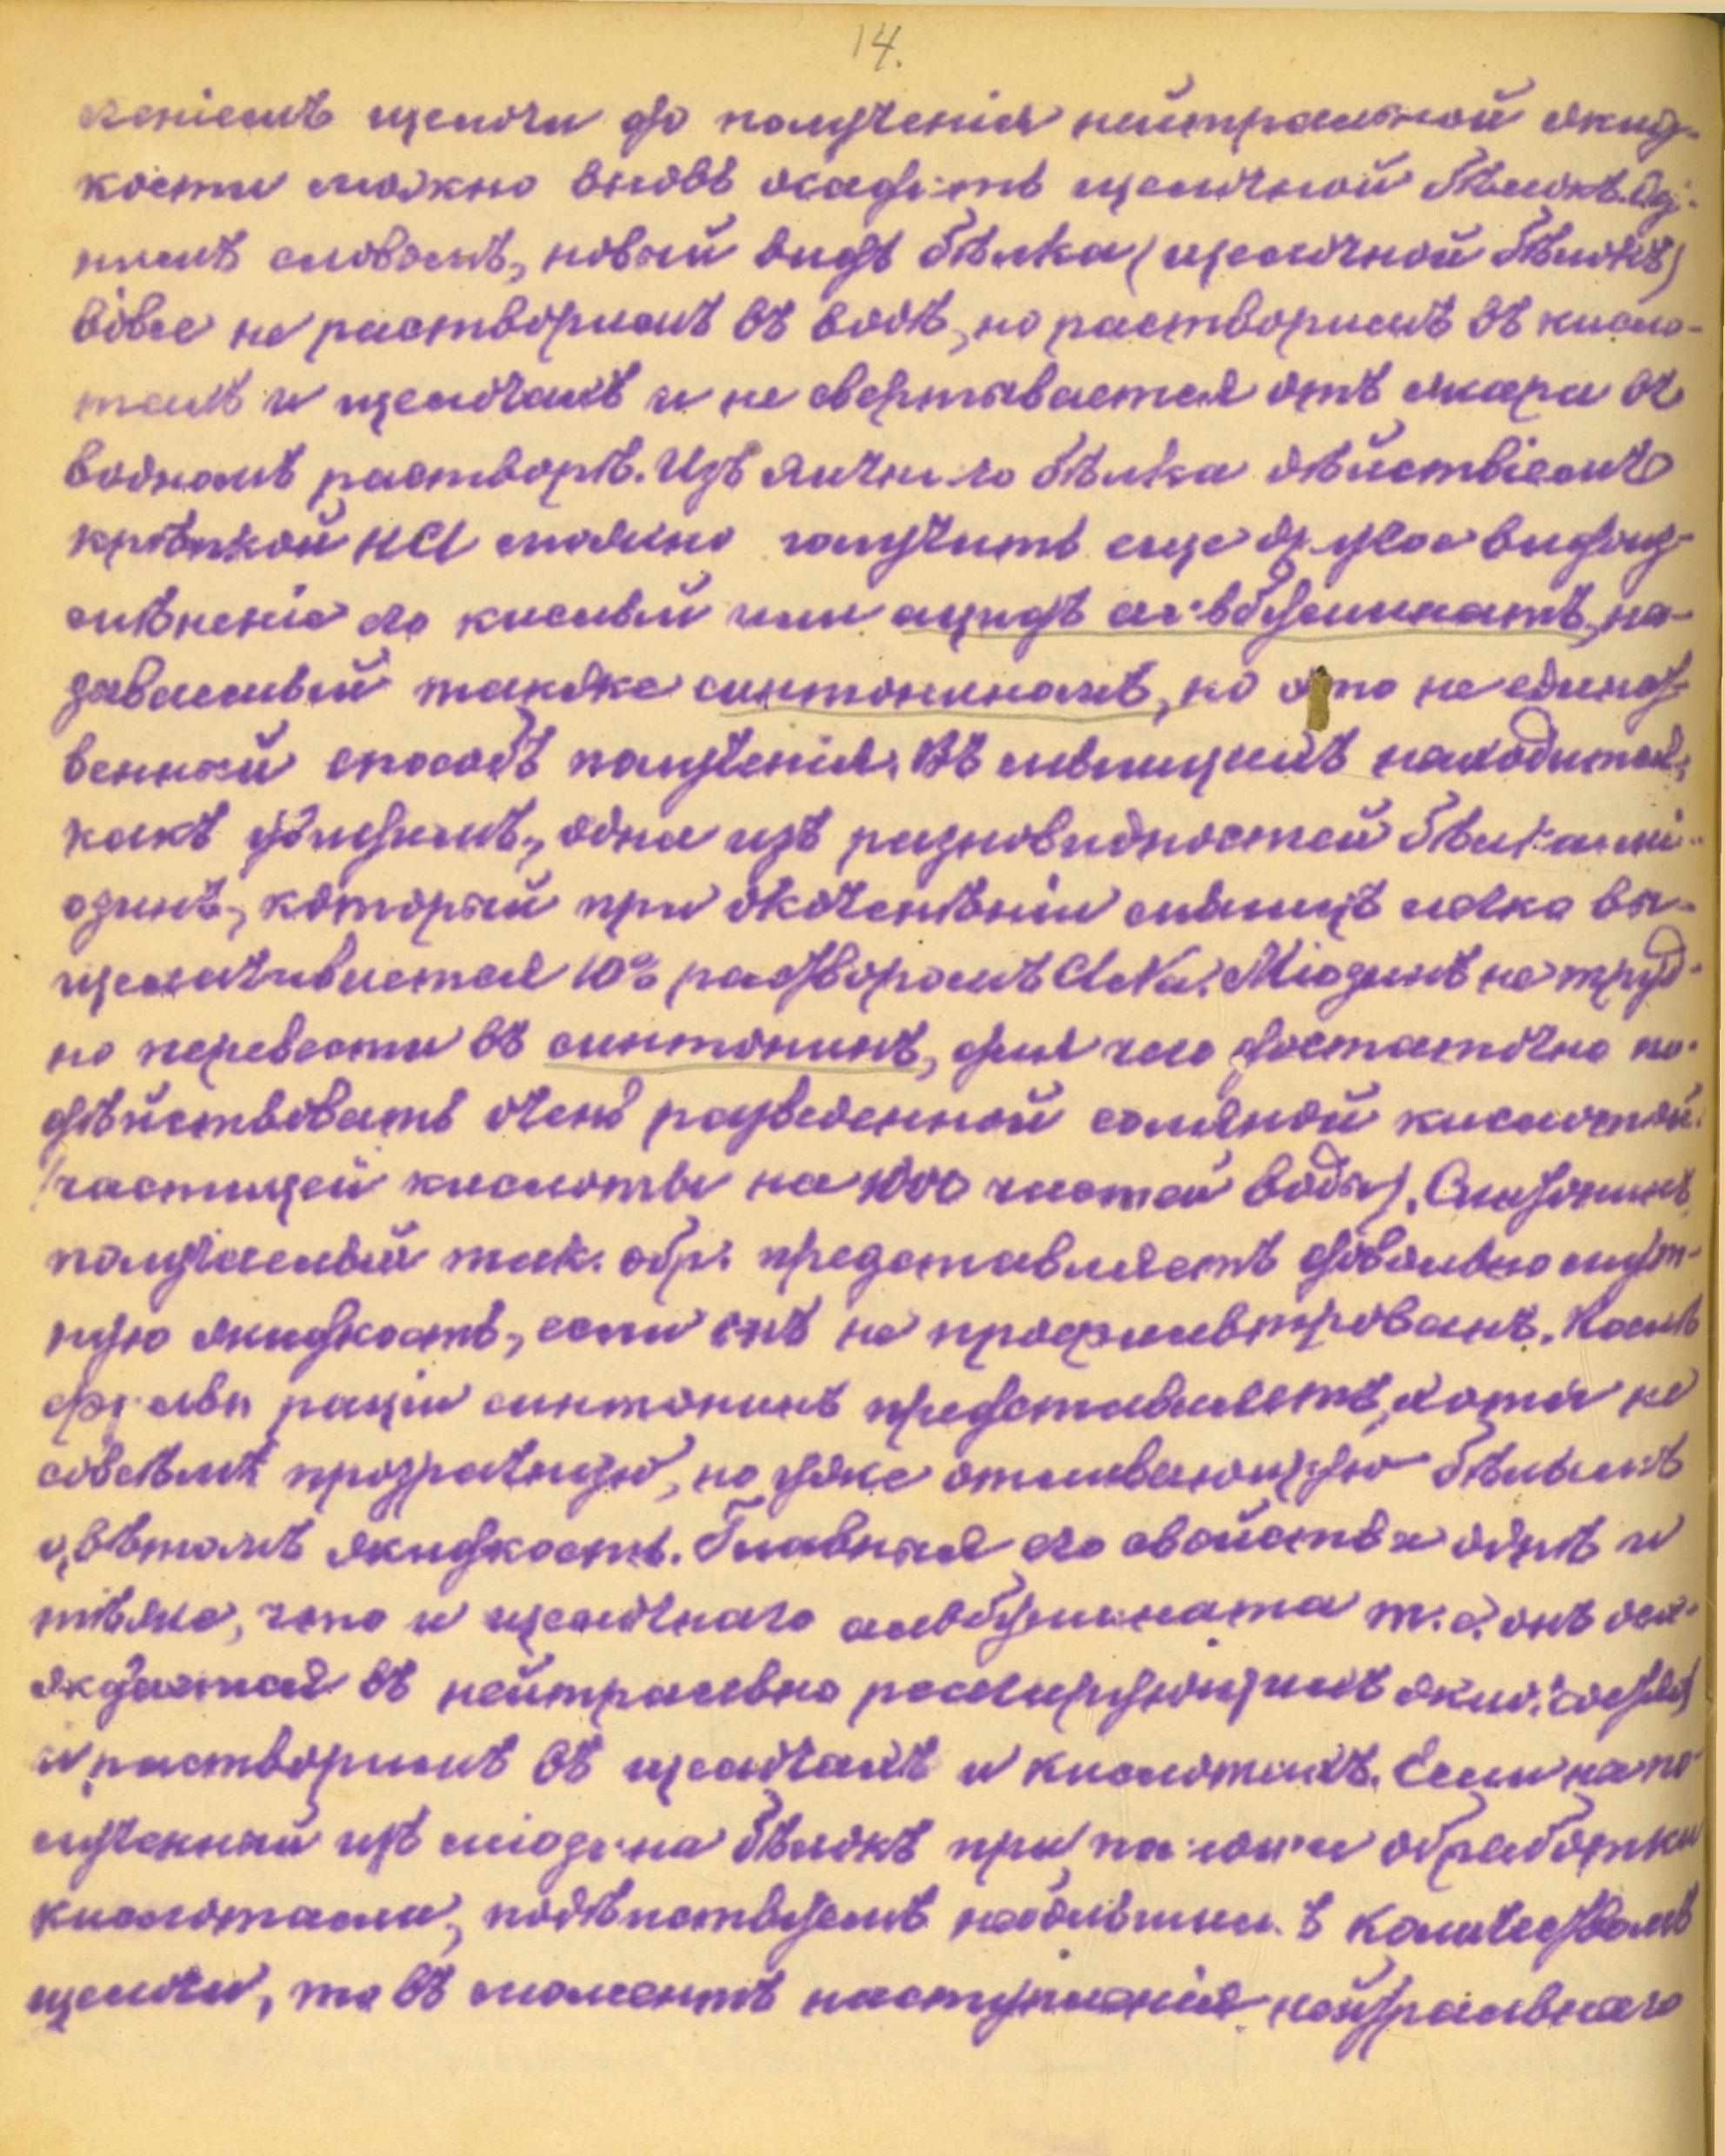 14.
женіемъ щелочи до полученія нейтральной жид-
кости можно вновь осадить щелочной бѣлокъ. Од-
нимъ словомъ, новый видъ бѣлка (щелочной бѣлокъ)
вовсе не растворимъ въ водѣ, но растворимъ въ кисло-
тахъ и щелочахъ и не свертывается отъ жара въ
водномъ растворѣ. Изъ яичнаго бѣлка дѣйствіемъ
крѣпкой HCl можно получить еще другое видоиз-
мѣненіе его кислый или ацидъ альбуминатъ, на-
зываемый также синтониномъ, но это не единст-
венный способъ полученія. Въ мышцахъ находится,
какъ увидимъ, одна изъ разновидностей бѣлка: мі-
озинъ, который при окоченѣніи мышцъ легко вы-
щелачивается 10% растворомъ ClNa. Міозинъ не труд-
но перевести въ синтонинъ, для чего достаточно по-
дѣйствовать очень разведенной соляной кислотой.
(частицей кислоты на 1000 частей воды). Синтонинъ,
получаемый так. обр. представляетъ довольно мут-
ную жидкость, если онъ не профильтрованъ. Послѣ
фильтраціи синтонинъ представляетъ, хотя не
совсѣмъ прозрачную, но уже отливающую бѣлымъ
цвѣтомъ жидкость. Главныя его свойства однѣ и
тѣже, что и щелочнаго альбумината т. е. онъ оса-
ждается въ нейтрально реагирующихъ жид.
и растворимъ въ щелочахъ и кислотахъ. Если на по-
лученный изъ міозина бѣлокъ при помощи обработки
кислотами, подѣйствуемъ небольшимъ количествомъ
щелочи, то въ моментъ наступленія нейтральнаго